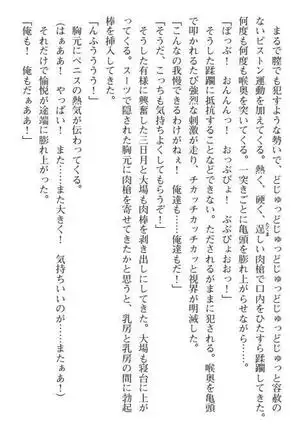 まるで膣でも犯すような勢いで、どじゅっどじゅっどじゅっどじゅっと容赦の
ないピストン運動を加えてくる。熱く、硬く、逞しい肉槍で口内をひたすら蹂躙してきた。
何度も何度も喉奥を突いてくる。一突きごとに亀頭を膨れ上がらせながら……。
「ぼっぶ!　おんんんっ!　おっぶびょ!　ぶぶびょおおっ!」
そうした蹂躙に抵抗することなどできない。ただされるがままだった。喉奥を亀頭
で叩かれるたび強烈な刺激が走り、チカッチカッチカッと視界が明滅した。
「こんなの我慢できるわけがねぇ!　俺達も……俺達もだ!」
「そうだ、こっちも気持ちよくしてもらうぞ!」
そうした有様に興奮した三日月と大場も肉棒を剥き出しにしてきた。大場も寝台に上が
る。スーツで隠された胸元に肉槍を寄せてきたかと思うと、乳房と乳房の間に勃起
棒を挿入してきた。
「んふぅううう!」
胸元にペニスの熱気が伝わってくる。
「はぁああ!　やっぱい!　また……また大きく!　気持ちいいのが……またぁあ!」
それだけで愉悦が途端に膨れ上がった。
「俺も!　俺もだぁああ!」